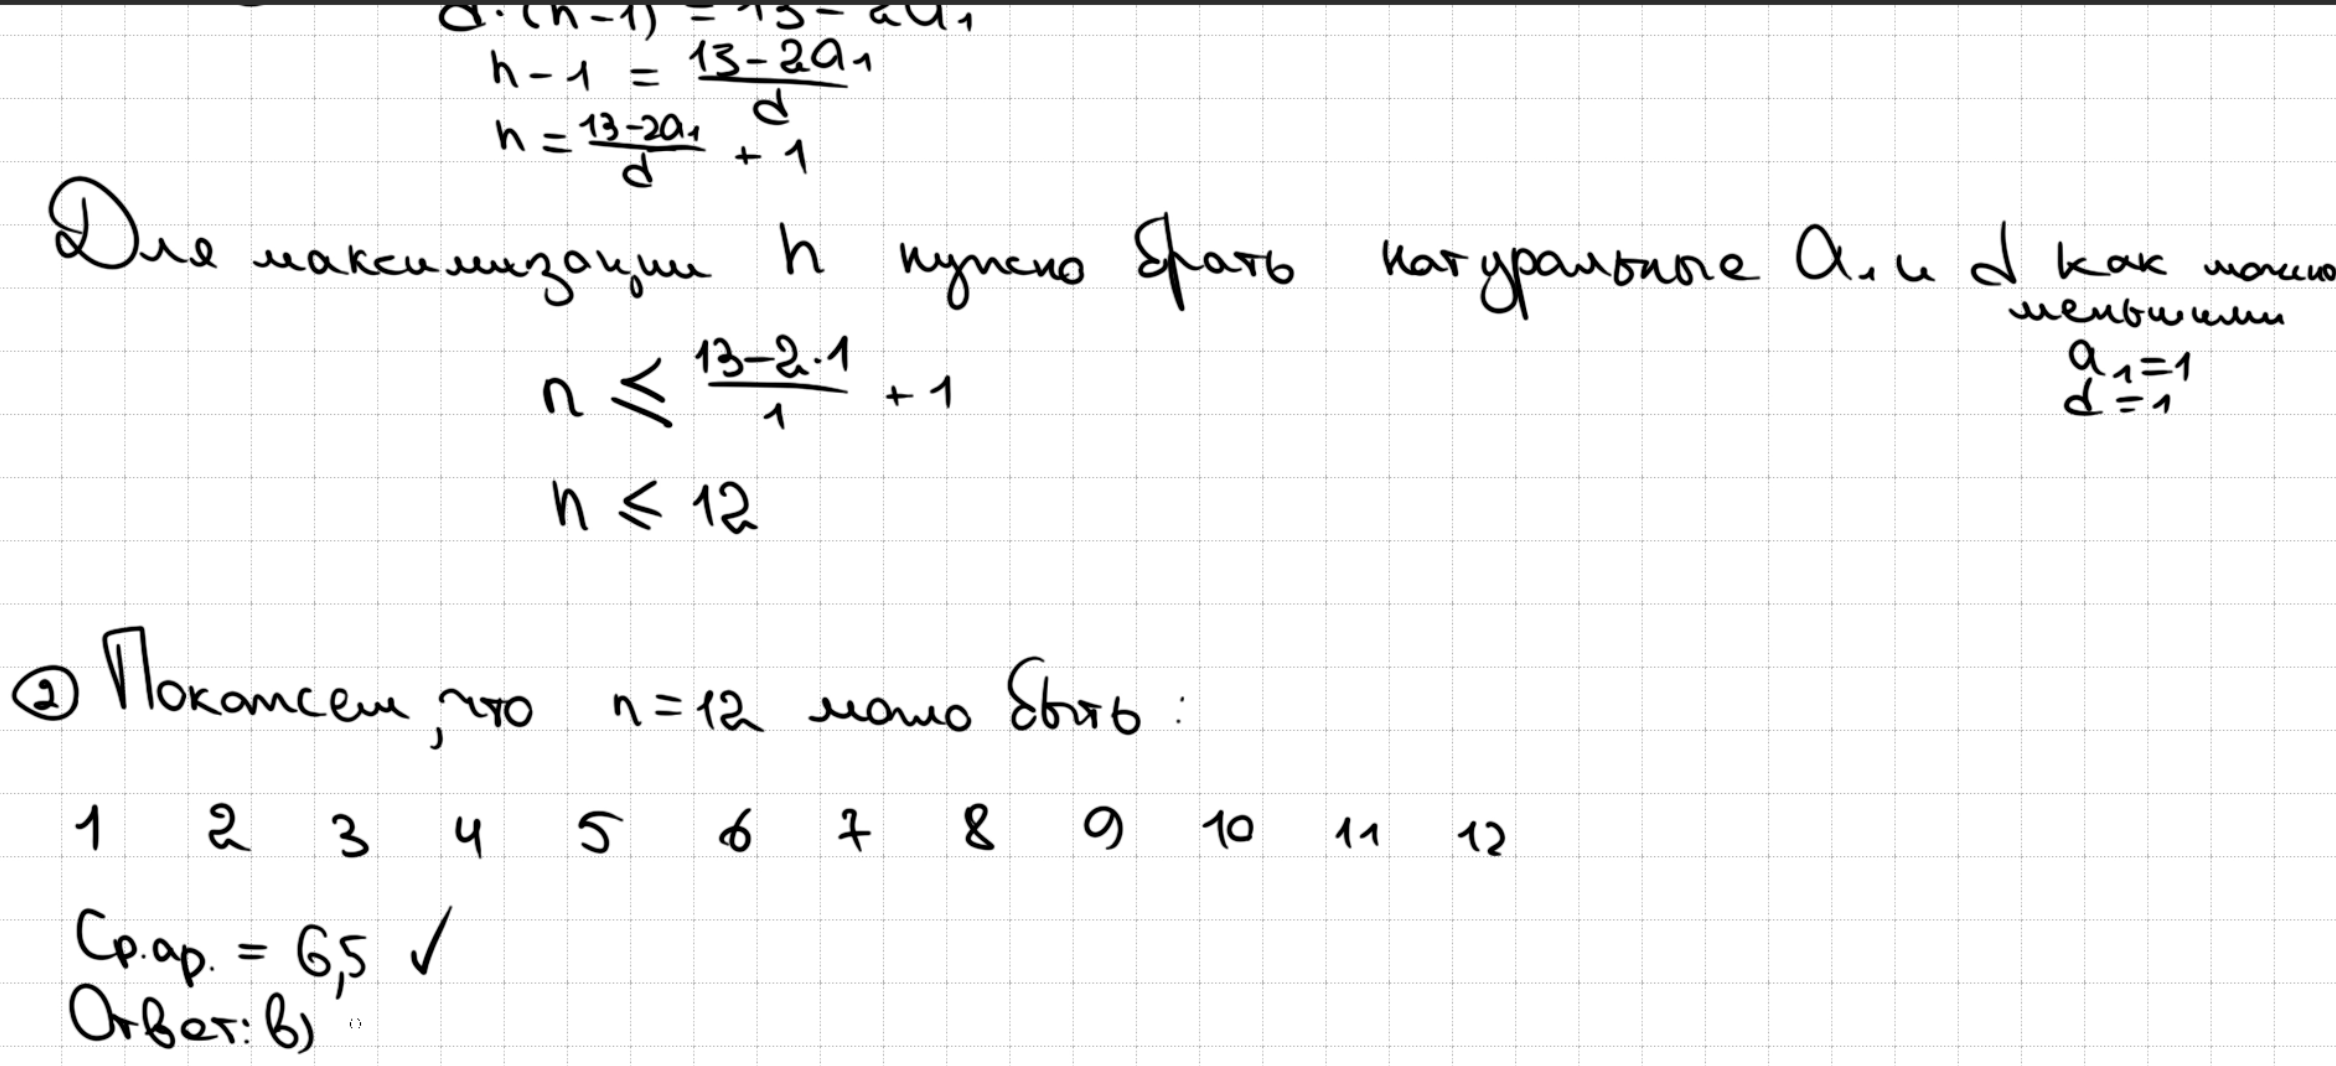 d·(n-1) = 13-2a₁
n-1 = (13-2a₁)/d
n = (13-2a₁)/d + 1
Для максимизации n нужно брать натуральные a₁ и d как можно
меньшими
a₁=1
d=1
n ≤ (13-2·1)/1 + 1
n ≤ 12
② Покажем, что n=12 може быть:
1 2 3 4 5 6 7 8 9 10 11 12
Ср.ар. = 6,5 ✓
Ответ: в)